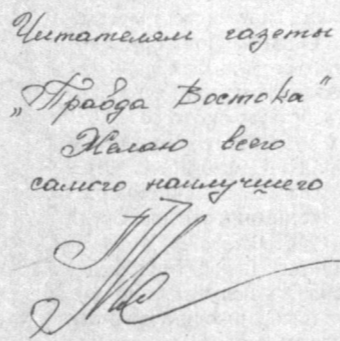 Читателям газеты
„Правда Востока"
Желаю всего
самого наилучшего